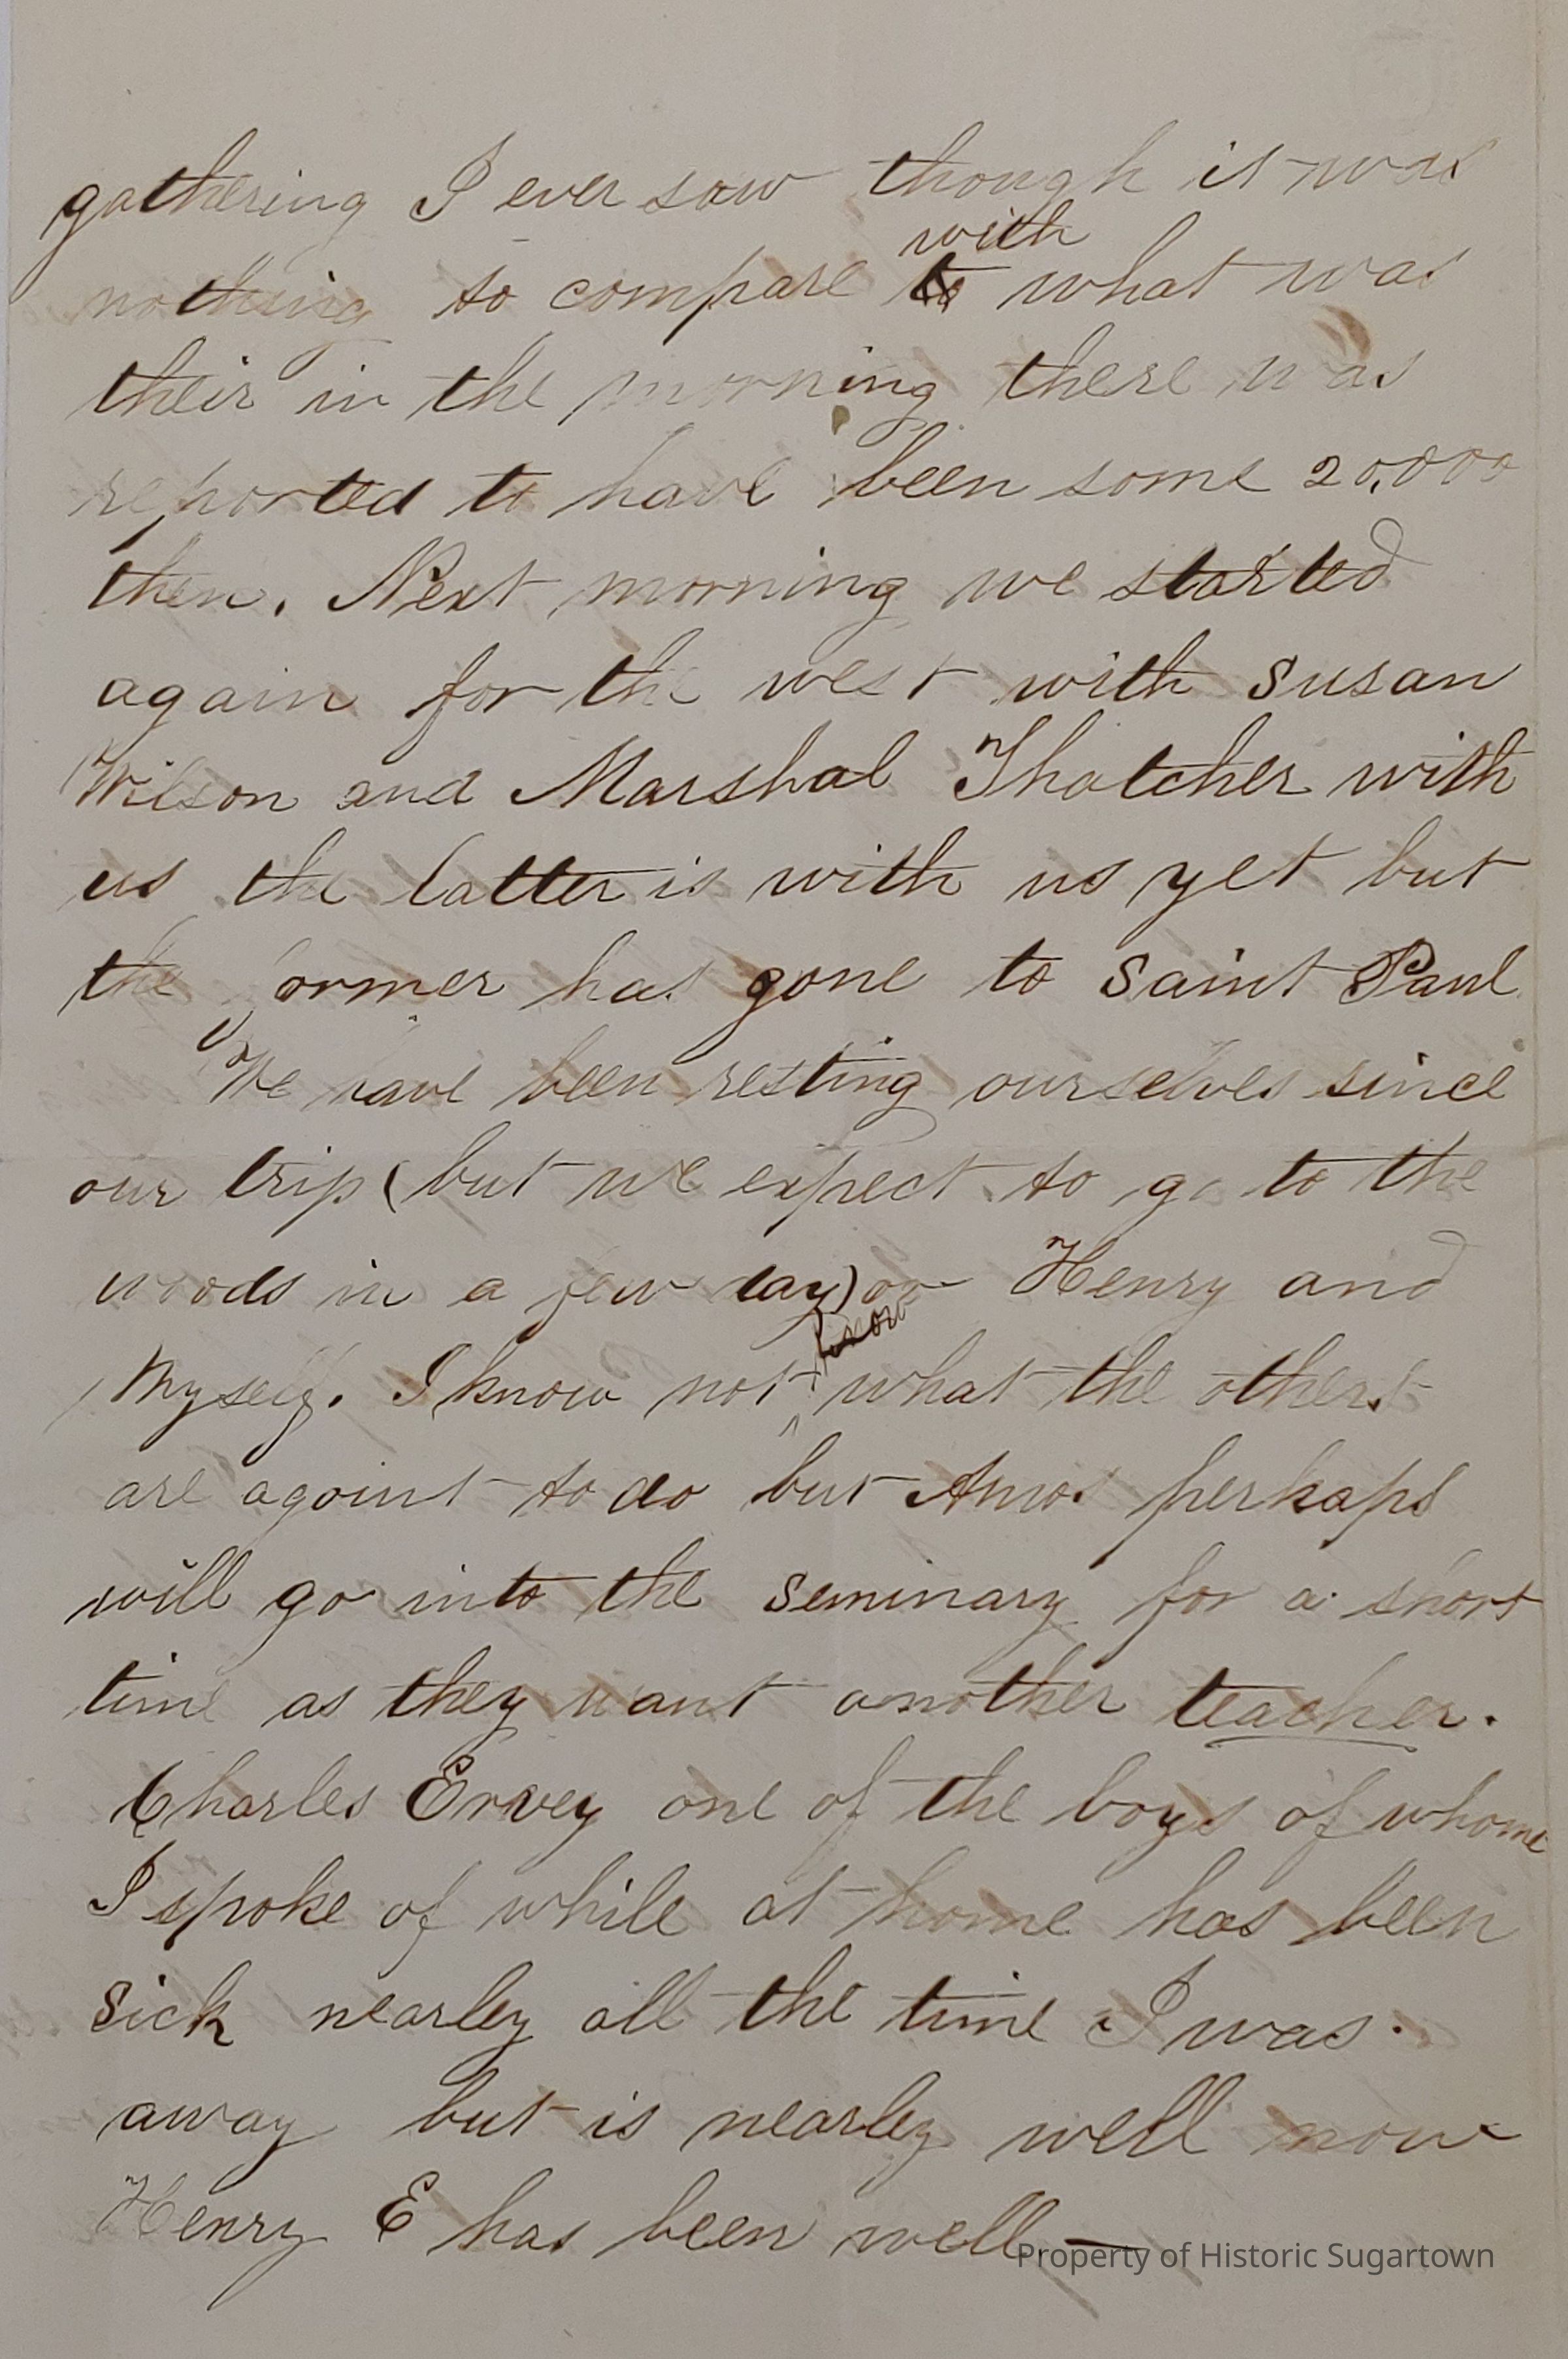 gathering I ever saw though it was
with
nothing to compare to what was
their in the morning there was
reported to have been some 20,000
then. Next morning we started
again for the west with Susan
Wilson and Marshal Thatcher with
us the latter is with us yet but
the former has gone to Saint Paul
We have been resting ourselves since
our trip (but we expect to go to the
woods in a few day) or Henry and
know
Myself. I know not what the others
are agoint to do but Amos perhaps
will go into the seminary for a short
time as they want another teacher.
Charles Ervey one of the boys of whome
I spoke of while at home has been
sick nearley all the time I was
away but is nearley well now
Henry E has been well —
Property of Historic Sugartown